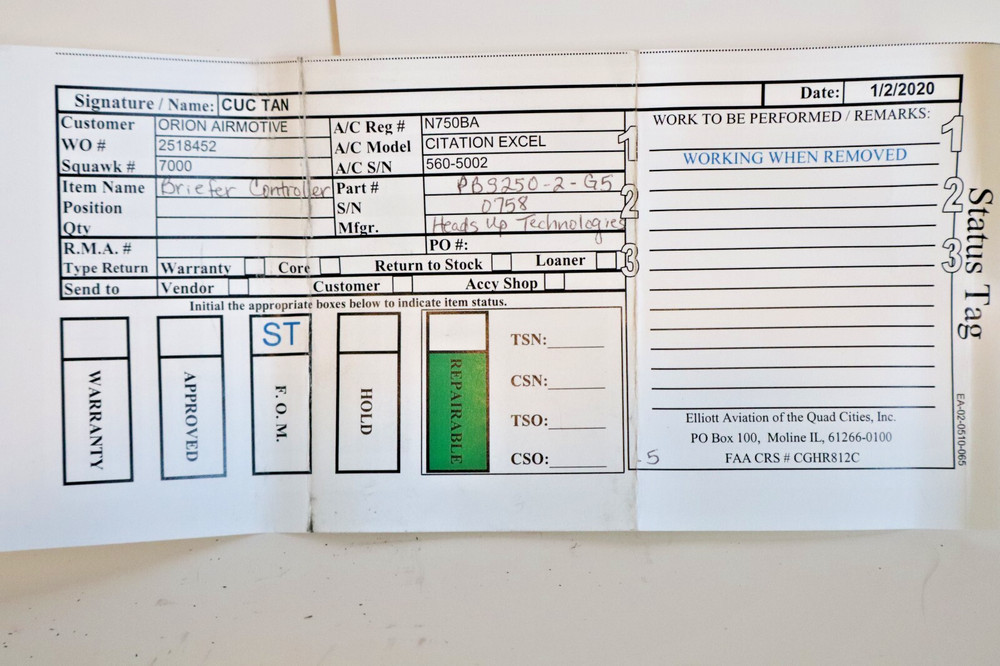 Signature / Name: CUC TAN Date: 1/2/2020
Customer ORION AIRMOTIVE A/C Reg # N750BA
WO # 2518452 A/C Model CITATION EXCEL
Squawk # 7000 A/C S/N 560-5002
Item Name Briefer Controller Part # PB9250-2-G5
Position S/N 0758
Qty Mfgr. Heads Up Technologies
R.M.A. # PO #:
Type Return Warranty Core Return to Stock Loaner
Send to Vendor Customer Accy Shop
Initial the appropriate boxes below to indicate item status.
ST
WARRANTY
APPROVED
F. O. M.
HOLD
REPAIRABLE
TSN:
CSN:
TSO:
CSO:
1
2
3
WORK TO BE PERFORMED / REMARKS:
WORKING WHEN REMOVED
Elliott Aviation of the Quad Cities, Inc.
PO Box 100, Moline IL, 61266-0100
FAA CRS # CGHR812C
1
2
3
Status Tag
EA-02-0510-065
.5